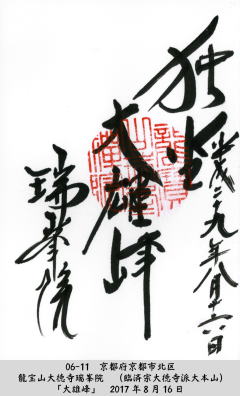 独坐
大雄峰
平成二十九年八月十六日
瑞峯院
06-11 京都府京都市北区
龍宝山大徳寺瑞峯院 （臨済宗大徳寺派大本山）
「大雄峰」 2017年8月16日